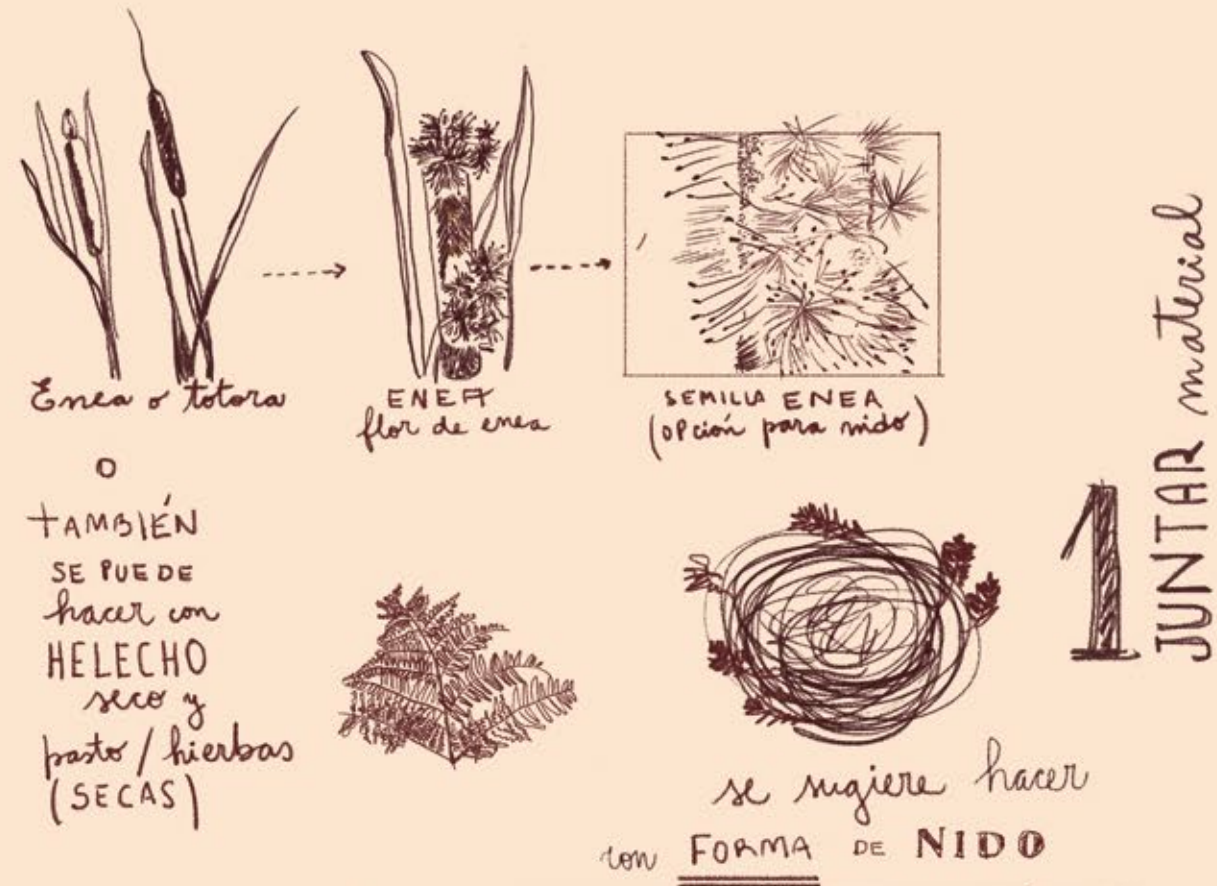 Enea o totora
ENEA
flor de enea
SEMILLA ENEA
(OPción para nido)
O
TAMBIÉN
SE PUEDE
hacer con
HELECHO
seco y
pasto / hierbas
(SECAS)
se sugiere hacer
con FORMA DE NIDO
1
JUNTAR material